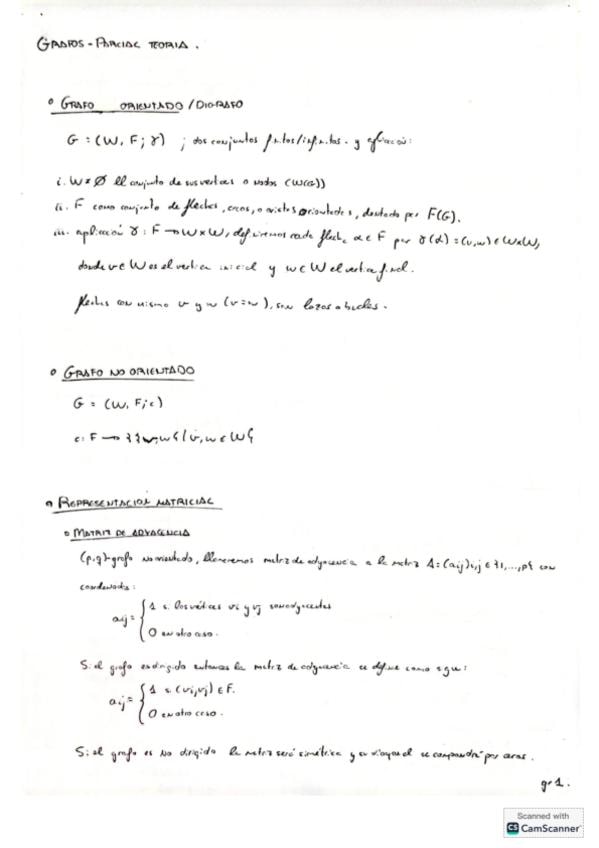 GRAFOS - PARCIAL TEORIA.
° GRAFO ORIENTADO / DIGRAFO
G = (W, F; γ) ; dos conjuntos finitos/infinitos. y aplicación:
i. W ≠ Ø el conjunto de sus vertices o nodos (W(G))
ii. F como conjunto de flechas, arcos, o aristas orientadas, denotado por F(G).
iii. aplicación γ: F → W×W, definiremos cada flecha α ∈ F por γ(α) = (v,w) ∈ W×W,
donde v ∈ W es el vertice inicial y w ∈ W el vertice final.
flechas con mismo v y w (v=w), son lazos o bucles.
° GRAFO NO ORIENTADO
G = (W, F; c)
c: F → {{v,w}/v,w ∈ W}
° REPRESENTACIÓN MATRICIAL
° MATRIZ DE ADYACENCIA
(p,q)-grafo no orientado, llamaremos matriz de adyacencia a la matriz A = (aij) i,j ∈ {1,...,p} con
coordenadas:
aij = { 1 si los vértices vi y vj son adyacentes
0 en otro caso.
Si el grafo es dirigido entonces la matriz de adyacencia se define como sigue:
aij = { 1 si (vi,vj) ∈ F.
0 en otro caso.
Si el grafo es no dirigido la matriz será simétrica y su diagonal se compondrá por ceros.
gr 1.
Scanned with
CS CamScanner